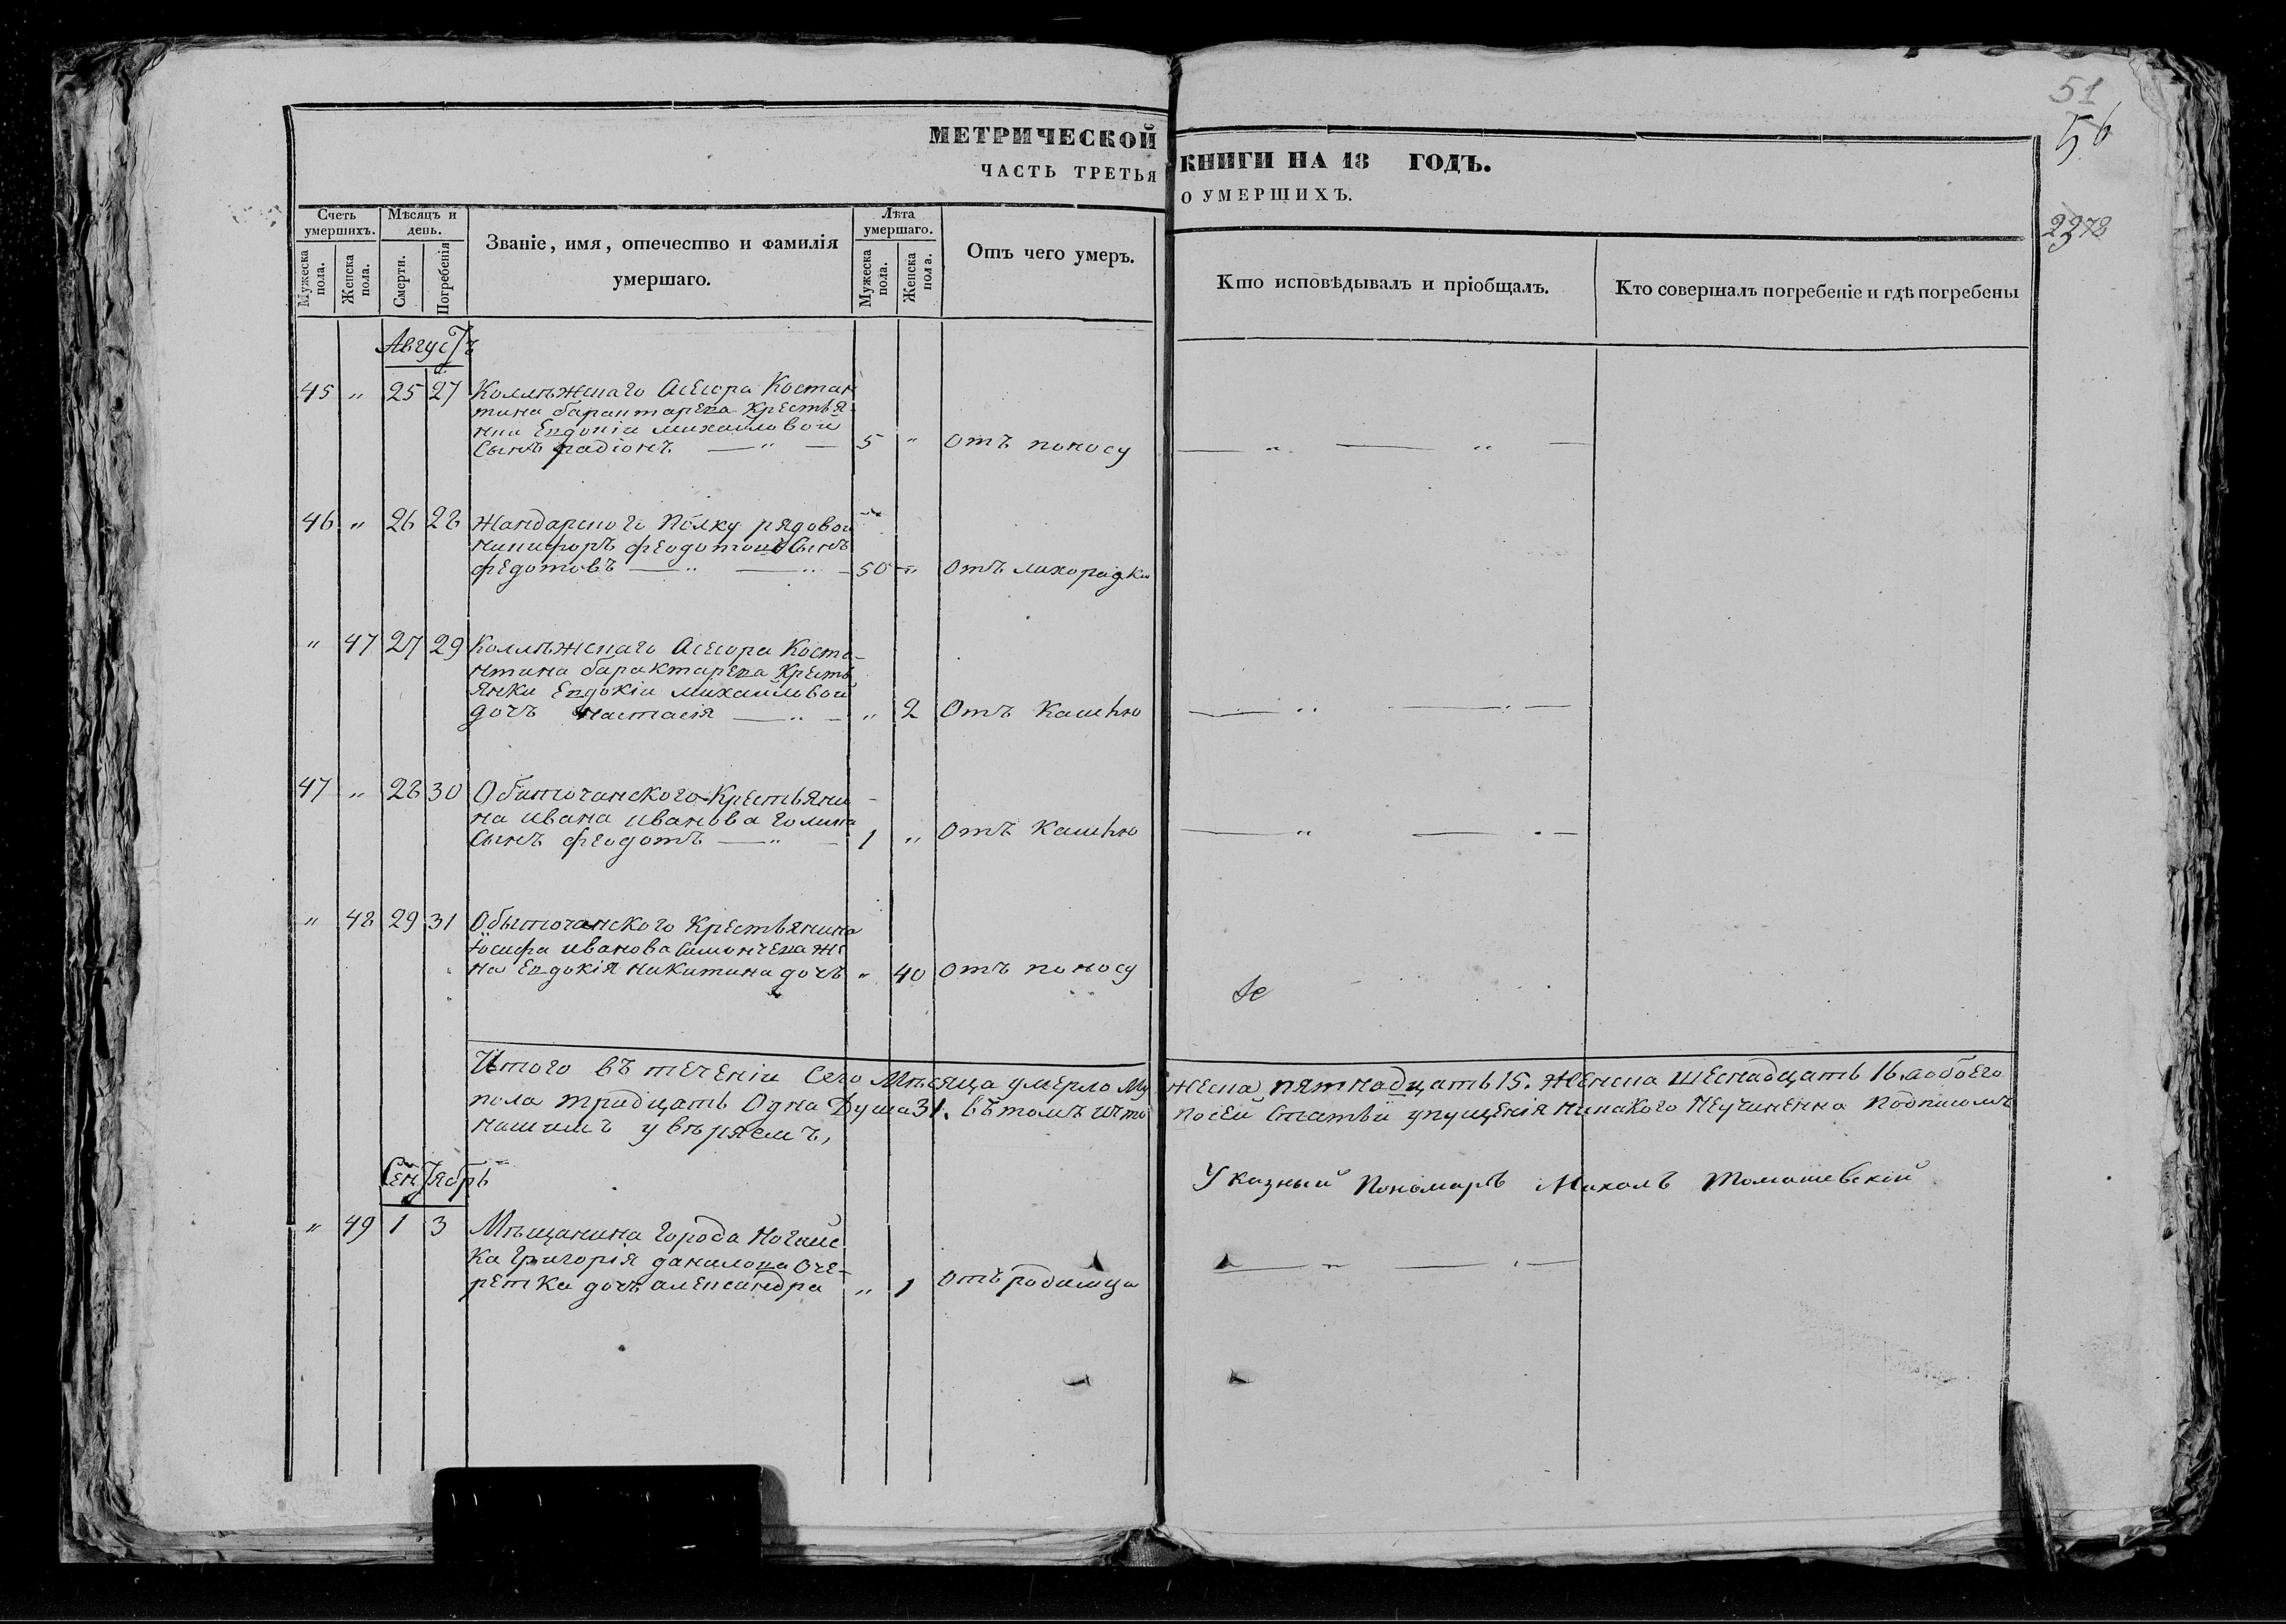 51
56
2378
МЕТРИЧЕСКОЙ КНИГИ НА 18 ГОДЪ.
ЧАСТЬ ТРЕТЬЯ О УМЕРШИХЪ.
Счетъ умершихъ.
Мужеска пола.
Женска пола.
Мѣсяцъ и день.
Смерти.
Погребенія
Званіе, имя, отечество и фамилія
умершаго.
Лѣта умершаго.
Мужеска пола.
Женска пола.
Отъ чего умеръ.
Кто исповѣдывалъ и пріобщалъ.
Кто совершалъ погребеніе и гдѣ погребены
Августъ
45 „ 25 27 Коллѣжскаго Асесора Костан
тина барактарева Крестья
нки Евдокіи михайловой
Сынъ радіонъ — „ — 5 „ Отъ поносу — „ — „ —
46 „ 26 28 Жандарского Полку рядовой
никифоръ феодотовъ Сынъ
федотовъ — „ — „ — 50 „ Отъ лихорадки
„ 47 27 29 Коллѣжскаго Асесора Коста-
нтина барактарева Кресть
янки Евдокіи михайловой
дочъ Настасія — „ — „ 2 Отъ Кашлю — „ — „ —
47 „ 28 30 Обиточанского Крестьяни-
на ивана иванова голика
Сынъ феодотъ — „ — 1 „ Отъ Кашлю — „ — „ —
„ 48 29 31 Обыточанского Крестьянина
Іосифа иванова Симончева же
на Евдокія никитина дочъ „ 40 Отъ поносу
Итого въ теченіи Сего Мѣсяца умерло мужеска пятнадцать 15. Женска шеснадцать 16. а обоего
пола тридцать Одна Душа 31. въ томъ что по сей Статьи упущенія никакого Неучиненно Подписомъ
нашимъ увѣряемъ,
Указный Пономаръ Михаилъ Томашевскій
Сентябрь
„ 49 1 3 Мѣщанина города Ногайс
ка григорія данилова Оче-
ретка дочъ александра „ 1 Отъ родимца — „ — „ —